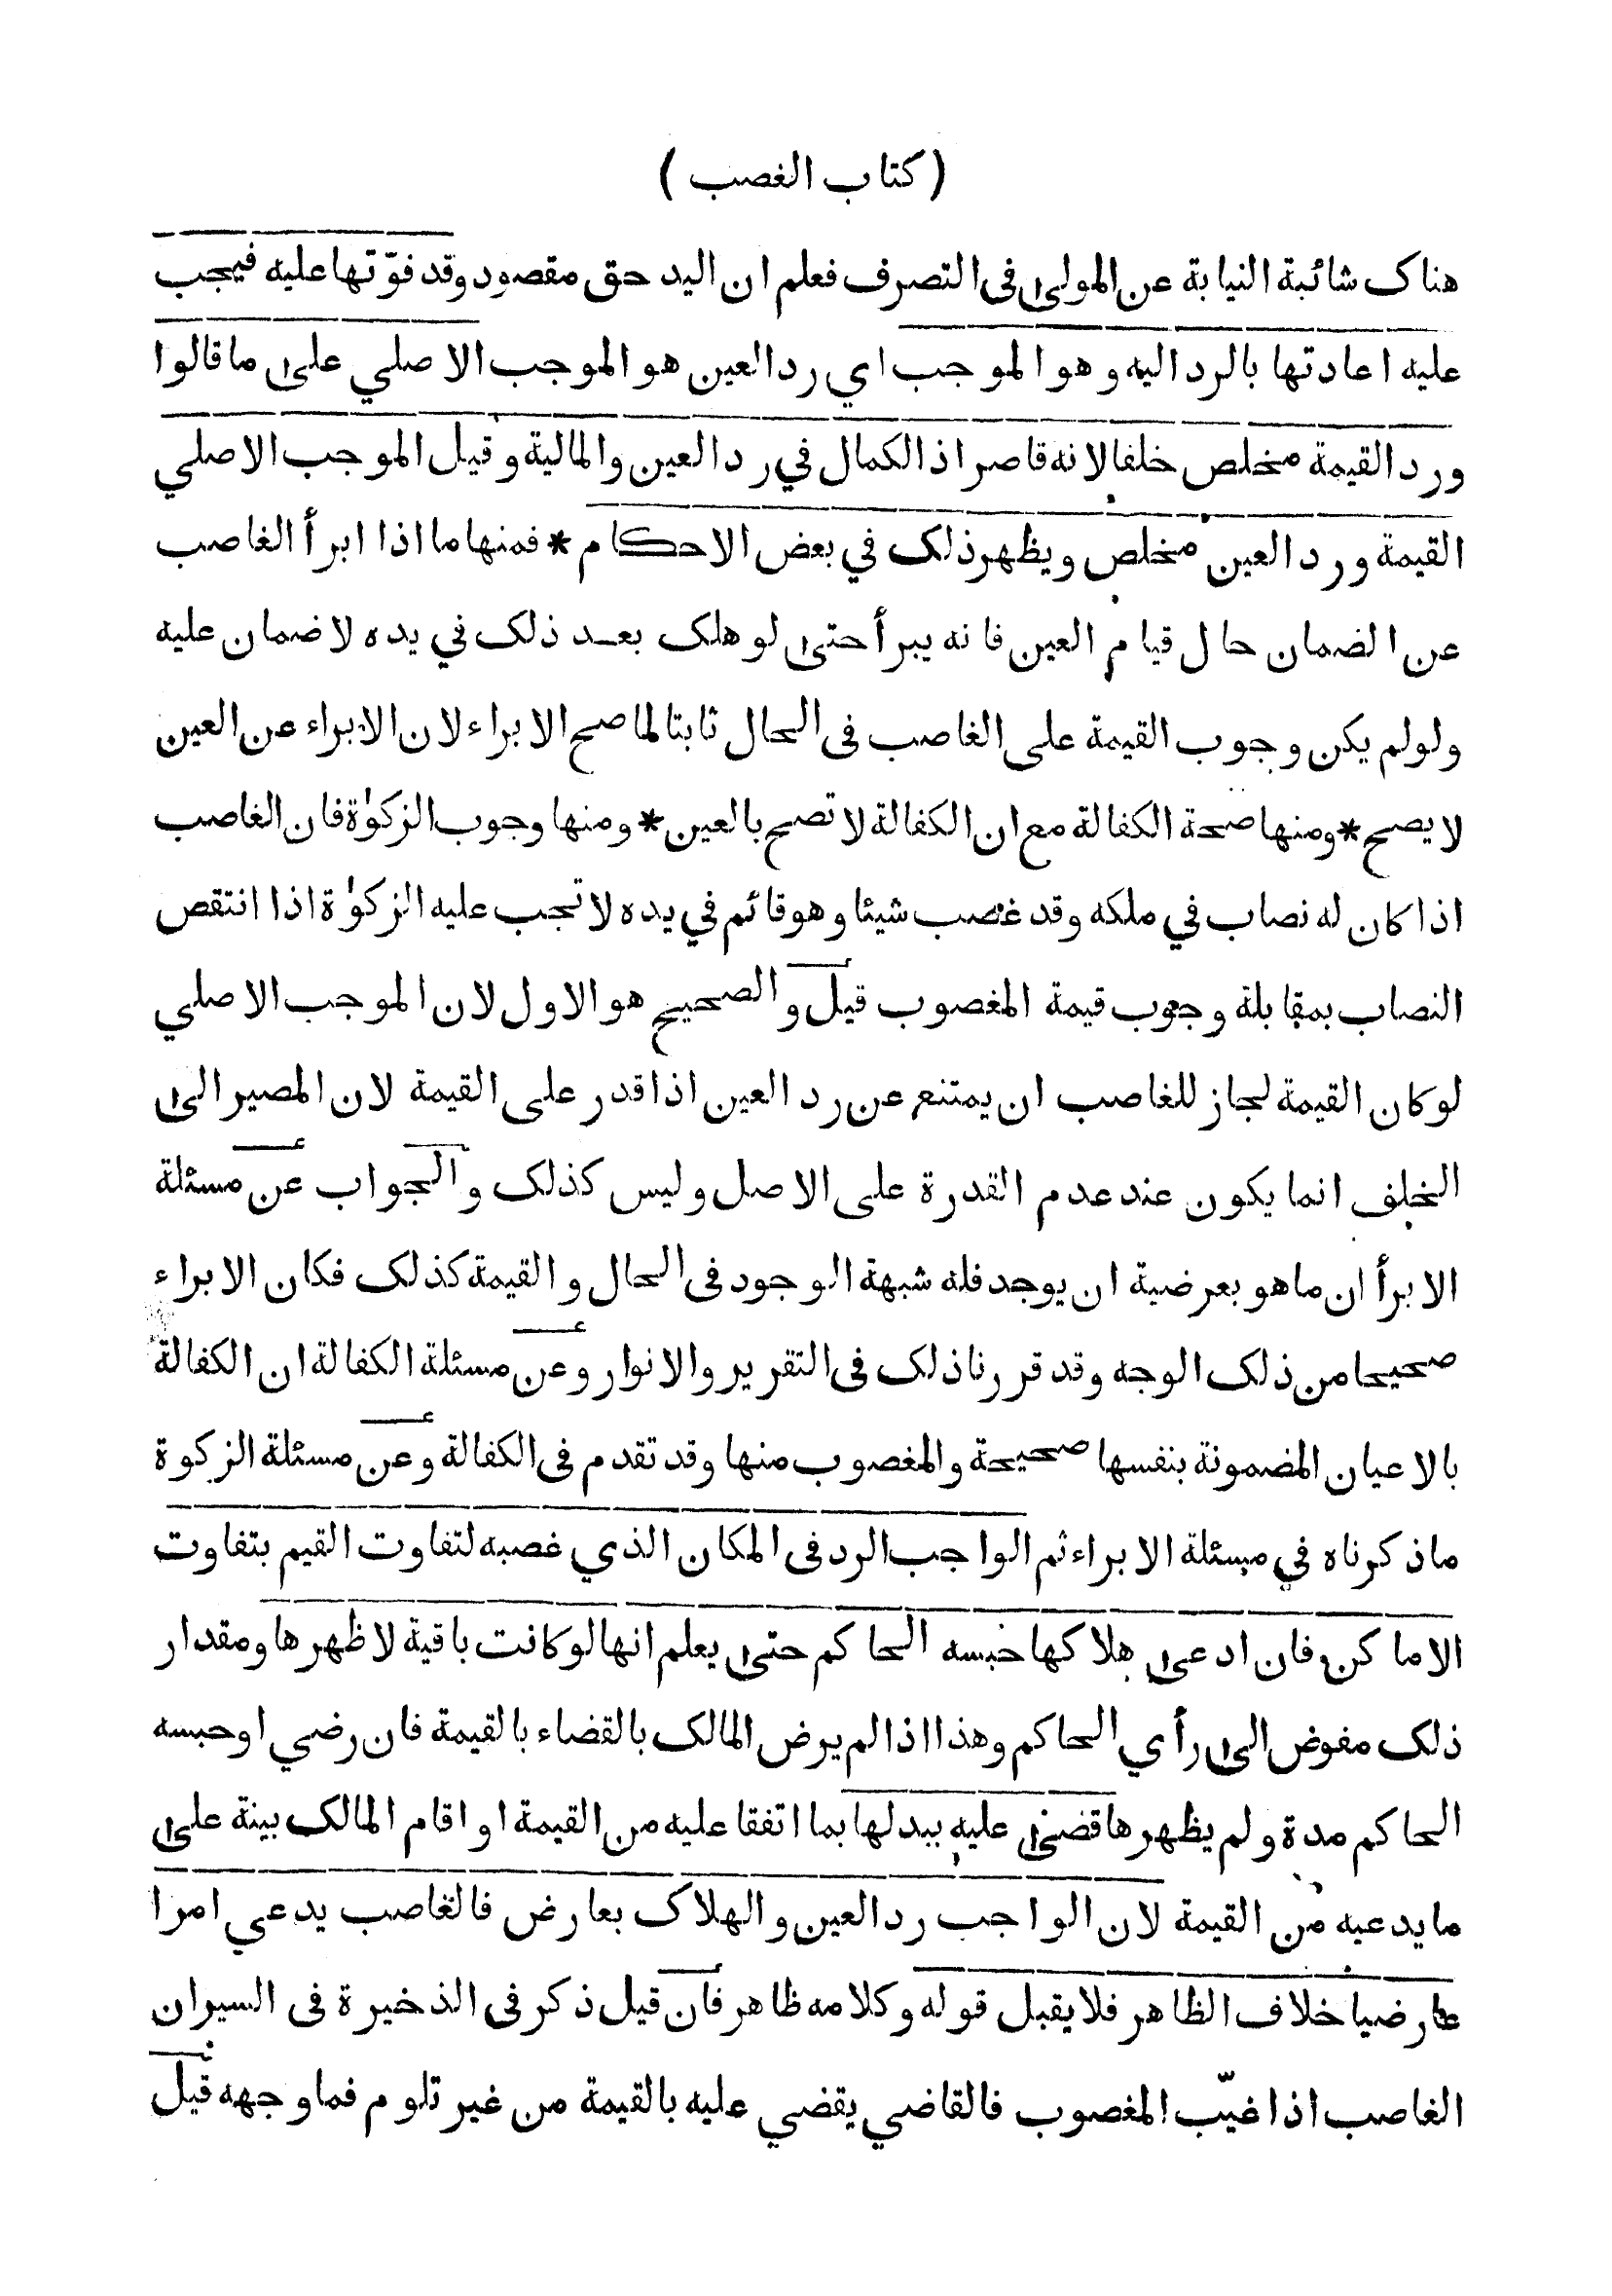 ( كتاب الغصب )
هناك شائبة النيابة عن المولى في التصرف فعلم ان اليد حق مقصود وقد فوّتها عليه فيجب
عليه اعادتها بالرد اليه وهو الموجب اي رد العين هو الموجب الاصلي على ما قالوا
ورد القيمة مخلص خلفا لانه قاصر اذ الكمال في رد العين والمالية وقيل الموجب الاصلي
القيمة ورد العين مخلص ويظهر ذلك في بعض الاحكام * فمنها ما اذا ابرأ الغاصب
عن الضمان حال قيام العين فانه يبرأ حتى لو هلك بعد ذلك في يده لا ضمان عليه
ولولم يكن وجوب القيمة على الغاصب في الحال ثابتا لما صح الابراء لان الابراء عن العين
لا يصح * ومنها صحة الكفالة مع ان الكفالة لا تصح بالعين * ومنها وجوب الزكوٰة فان الغاصب
اذا كان له نصاب في ملكه وقد غصب شيئا وهو قائم في يده لا تجب عليه الزكوٰة اذا انتقص
النصاب بمقابلة وجوب قيمة المغصوب قيل والصحيح هو الاول لان الموجب الاصلي
لو كان القيمة لجاز للغاصب ان يمتنع عن رد العين اذا قدر على القيمة لان المصير الى
الخلف انما يكون عند عدم القدرة على الاصل وليس كذلك والجواب عن مسئلة
الابرأ ان ما هو بعرضية ان يوجد فله شبهة الوجود في الحال والقيمة كذلك فكان الابراء
صحيحا من ذلك الوجه وقد قررنا ذلك في التقرير والانوار وعن مسئلة الكفالة ان الكفالة
بالاعيان المضمونة بنفسها صحيحة والمغصوب منها وقد تقدم في الكفالة وعن مسئلة الزكوة
ما ذكرناه في مسئلة الابراء ثم الواجب الرد في المكان الذي غصبه لتفاوت القيم بتفاوت
الاماكن فان ادعى هلاكها حبسه الحاكم حتى يعلم انها لو كانت باقية لاظهرها ومقدار
ذلك مفوض الى رأي الحاكم وهذا اذا لم يرض المالك بالقضاء بالقيمة فان رضي او حبسه
الحاكم مدة ولم يظهرها قضى عليه ببدلها بما اتفقا عليه من القيمة او اقام المالك بينة على
ما يدعيه من القيمة لان الواجب رد العين والهلاك بعارض فالغاصب يدعي امرا
عارضيا خلاف الظاهر فلا يقبل قوله وكلامه ظاهر فان قيل ذكر في الذخيرة في السير ان
الغاصب اذا غيّب المغصوب فالقاضي يقضي عليه بالقيمة من غير تلوم فما وجهه قيل